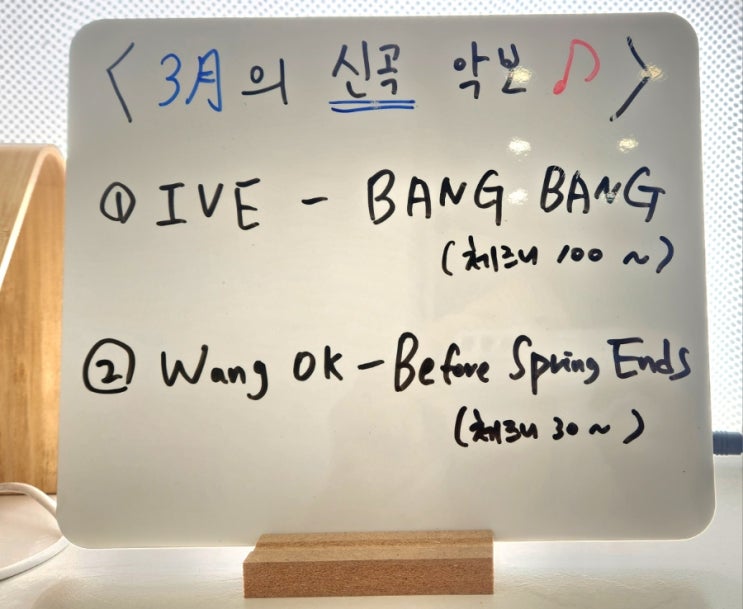 < 3月의 신곡 악본 ♪ >
① IVE - BANG BANG
(체르니 100 ~)
② Wang OK - Before Spring Ends
(체르니 30 ~)